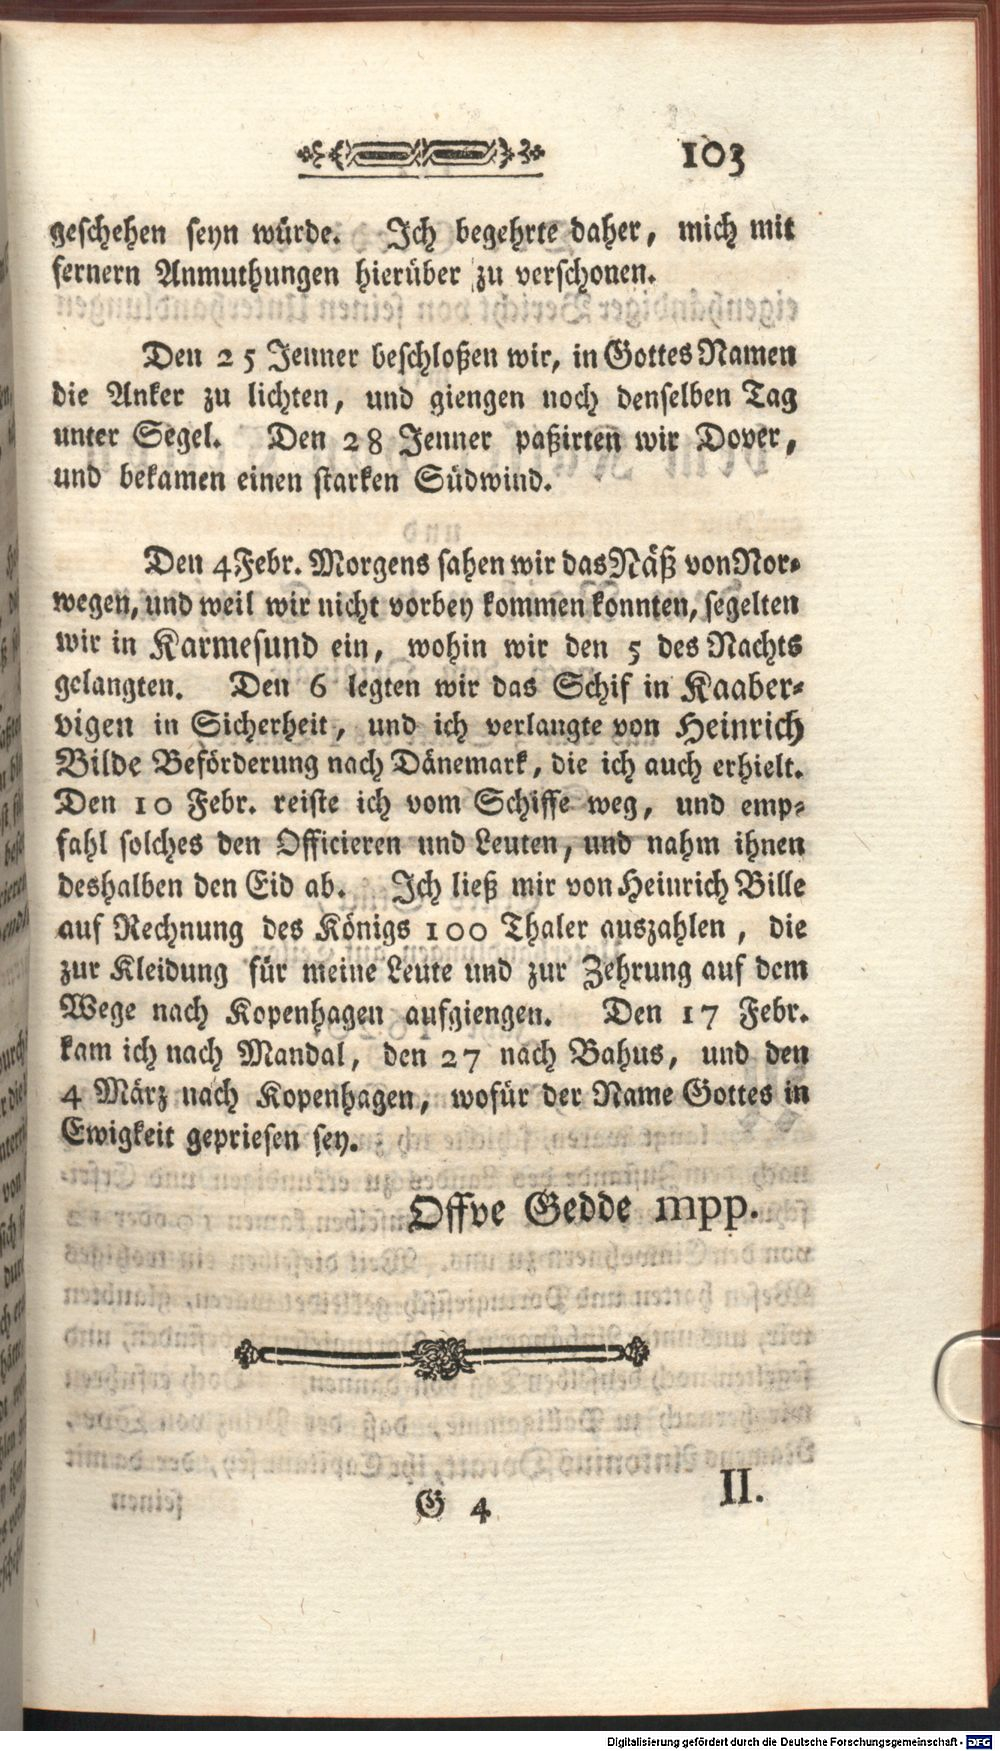 103
geschehen seyn würde. Ich begehrte daher, mich mit
fernern Anmuthungen hierüber zu verschonen.
Den 25 Jenner beschloßen wir, in Gottes Namen
die Anker zu lichten, und giengen noch denselben Tag
unter Segel. Den 28 Jenner paßirten wir Dover,
und bekamen einen starken Südwind.
Den 4 Febr. Morgens sahen wir das Näß von Nor-
wegen, und weil wir nicht vorbey kommen konnten, segelten
wir in Karmesund ein, wohin wir den 5 des Nachts
gelangten. Den 6 legten wir das Schif in Kaaber-
vigen in Sicherheit, und ich verlangte von Heinrich
Bilde Beförderung nach Dänemark, die ich auch erhielt.
Den 10 Febr. reiste ich vom Schiffe weg, und emp-
fahl solches den Officieren und Leuten, und nahm ihnen
deshalben den Eid ab. Ich ließ mir von Heinrich Bille
auf Rechnung des Königs 100 Thaler auszahlen, die
zur Kleidung für meine Leute und zur Zehrung auf dem
Wege nach Kopenhagen aufgiengen. Den 17 Febr.
kam ich nach Mandal, den 27 nach Bahus, und den
4 März nach Kopenhagen, wofür der Name Gottes in
Ewigkeit gepriesen sey.
Offve Gedde mpp.
G 4
II.
Digitalisierung gefördert durch die Deutsche Forschungsgemeinschaft - DFG